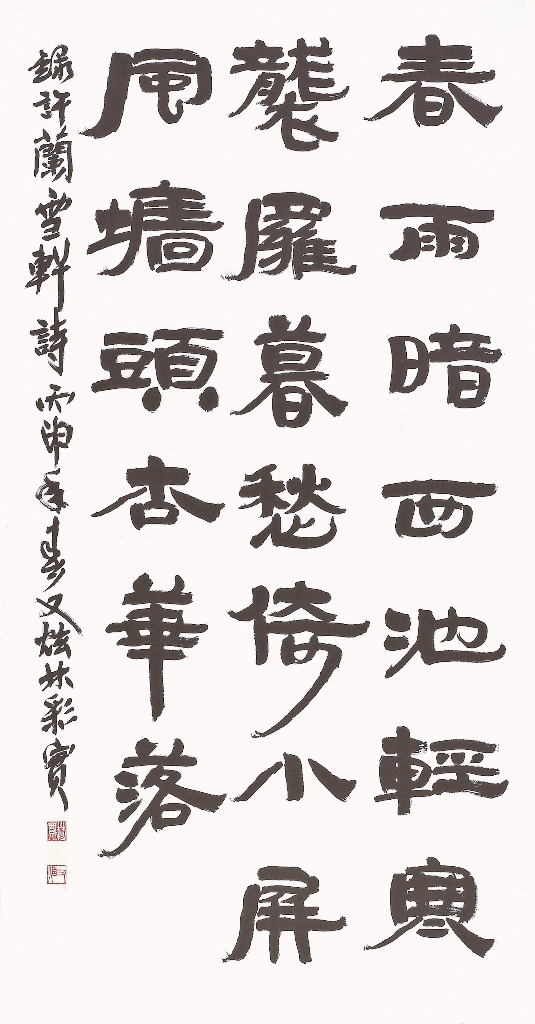 春雨暗西池輕寒
襲羅暮愁倚小屏
風墻頭杏華落
錄許蘭雪軒詩 丙申年春 又炫 林彩